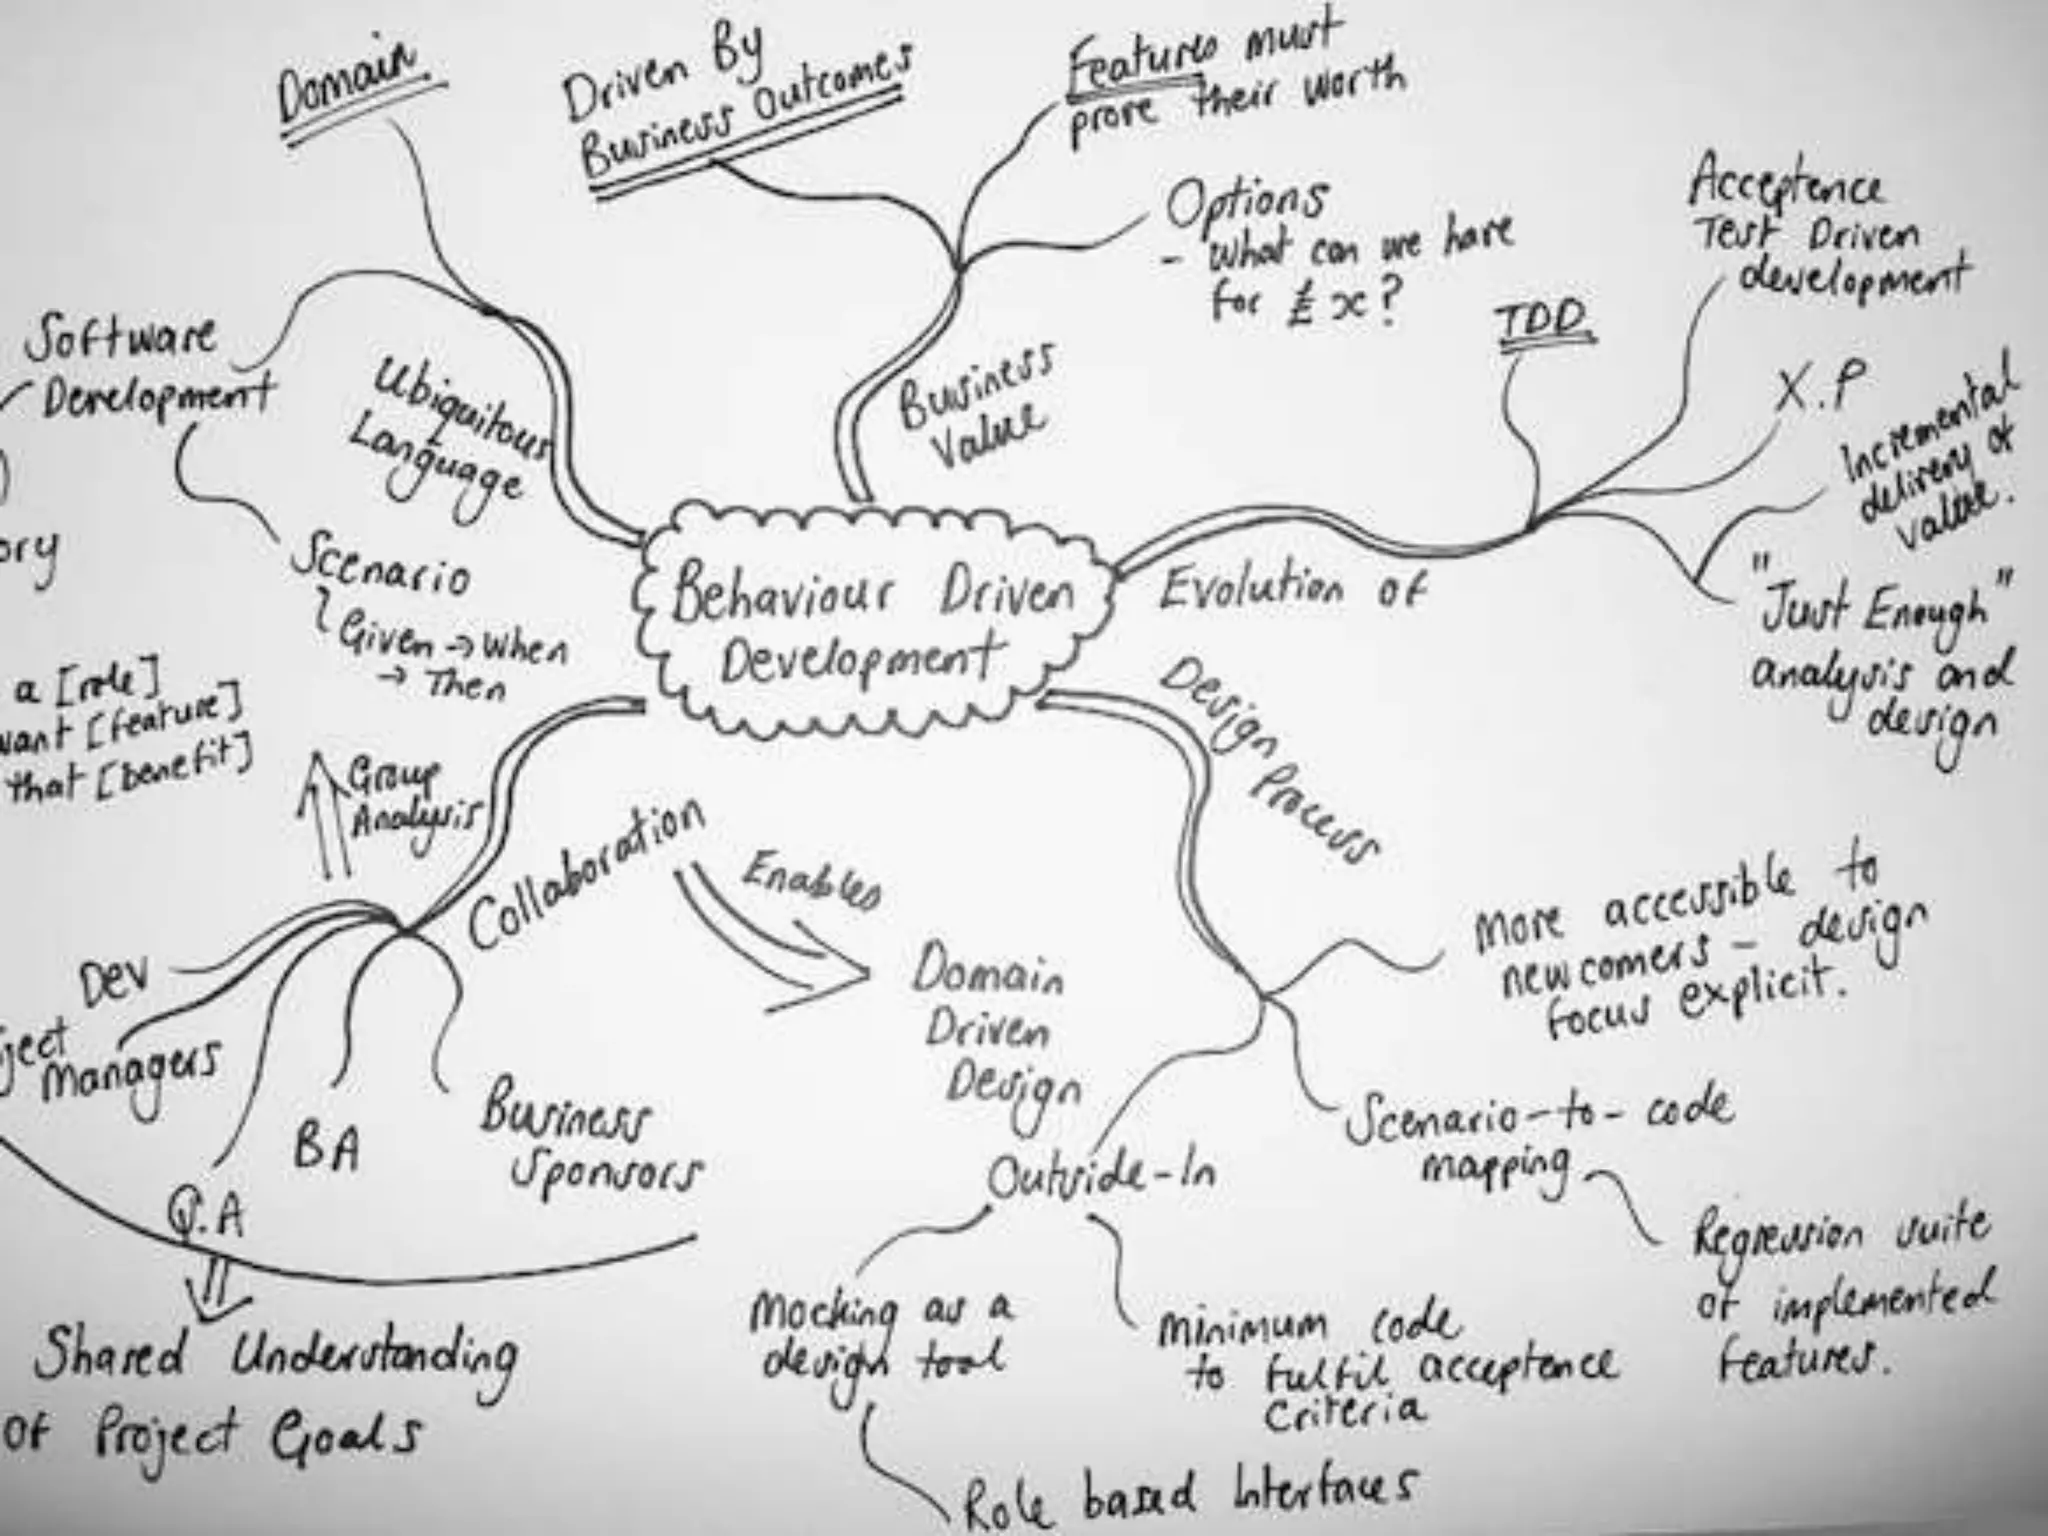 Domain
Driven By
Business Outcomes
Features must
prove their worth
Options
- What can we have
for £ x?
Business
Value
Acceptence
Test Driven
development
TDD
X.P
Incremental
delivery of
value.
"Just Enough"
analysis and
design
Evolution of
Software
Development
Ubiquitous
Language
Scenario
Given → When
→ Then
ory
a [role]
want [feature]
that [benefit]
Behaviour Driven
Development
Design
Process
Group
Analysis
Collaboration
Enables
Domain
Driven
Design
Dev
ject
Managers
Q.A
BA
Business
Sponsors
Shared Understanding
Of Project Goals
More accessible to
newcomers - design
focus explicit.
Scenario-to-code
mapping
Regression suite
of implemented
features.
Outside-In
Mocking as a
design tool
Minimum code
to fulfil acceptence
criteria
Role based Interfaces